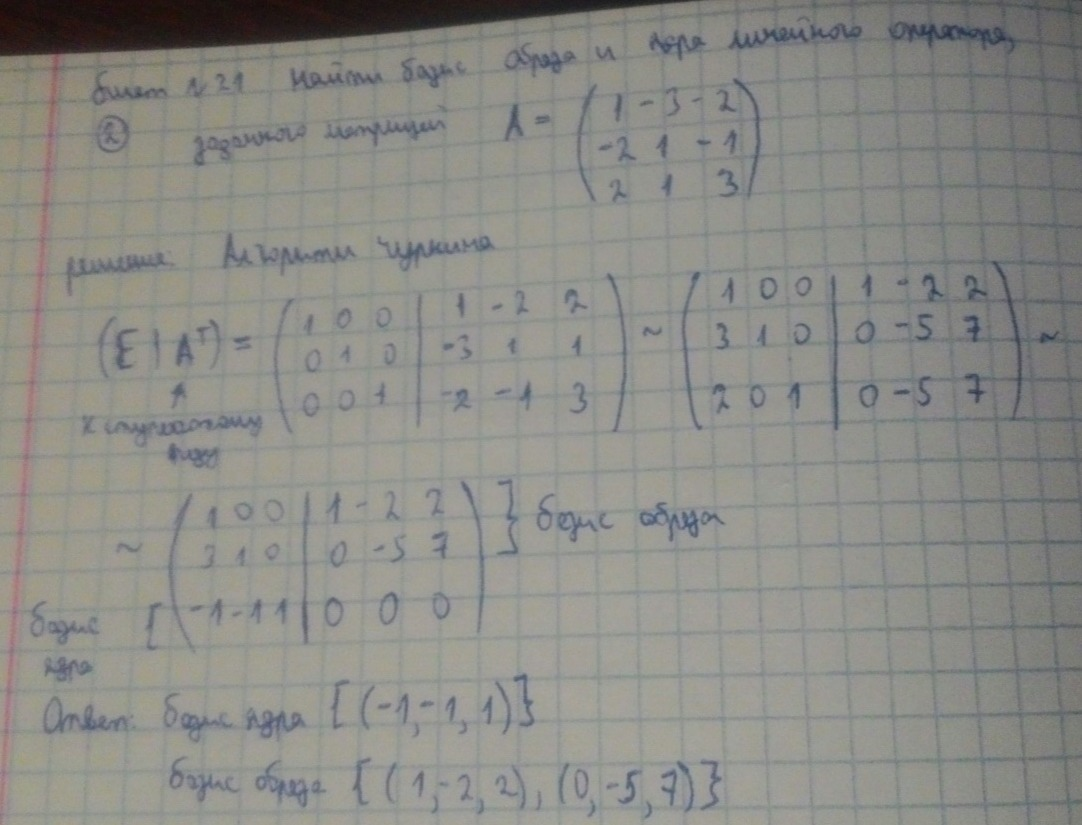 билет №21 Найти базис образа и ядра линейного оператора,
② заданного матрицей A = (1 -3 -2
-2 1 -1
2 1 3)
решение: Алгоритм Чуркина
(E | Aᵀ) = (1 0 0 | 1 -2 2
0 1 0 | -3 1 1
0 0 1 | -2 -1 3) ~ (1 0 0 | 1 -2 2
3 1 0 | 0 -5 7
2 0 1 | 0 -5 7) ~
↑
к ступенчатому
виду
~ (1 0 0 | 1 -2 2
3 1 0 | 0 -5 7
-1 -1 1 | 0 0 0)
} базис образа
базис [
ядра
Ответ: базис ядра {(-1,-1,1)}
базис образа {(1,-2,2), (0,-5,7)}